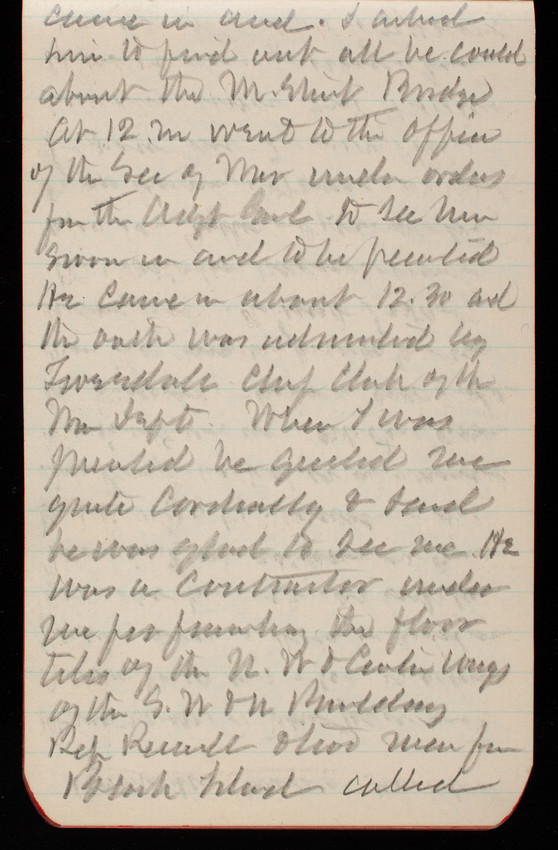 came in and. I asked
him to find out all he could
about the M Street Bridge
At 12. m went to the office
of the Sec of War under orders
fm the Adgt Genl to see him
sworn in and to be presented
He came in about 12.30 and
the oath was administed by
Tweedale Chief Clerk of the
War Dept. When I was
presented he greeted me
quite cordially & said
he was glad to see me. He
was a contractor under
me for furnishing the floor
tiles of the N. W & Center Wings
of the S. W & N Building
Rep Russell & two men fm
Block Island called